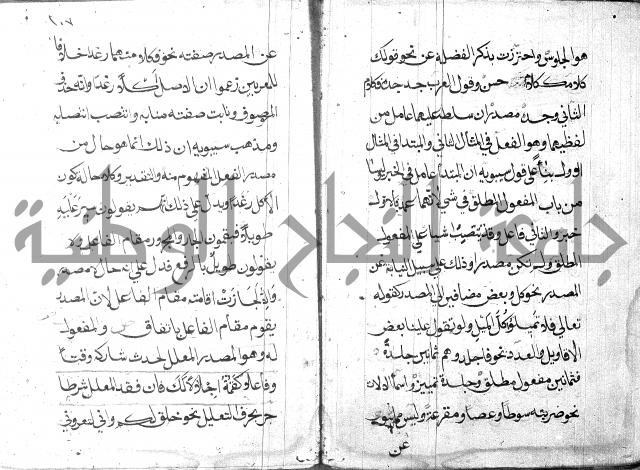 هو الجلوس واحترزت بذكر الفضلة عن نحو قولك
كلامك كلام حسن وقول العرب جد جده فكلام
الثاني وجده مصدران سلط عليهما عامل من
لفظهما وهو الفعل في المثال الثاني والمبتدا في المثال
الاول بناء على قول سيبويه ان المبتدا عامل في الخبر وليسا
من باب المفعول المطلق في شي لانهما عمدة
خبر والثاني فاعل وقد تنصب اشيا على المفعول
المطلق ولم تكن مصدرا وذلك على سبيل النيابة عن
المصدر نحو كل وبعض مضافين الى المصدر كقوله
تعالى فلا تميلوا كل الميل ولو تقول علينا بعض
الاقاويل والعدد نحو فاجلدوهم ثمانين جلدة
فثمانين مفعول مطلق وجلدة تمييز واسما الالات
نحو ضربته سوطا وعصا ومقرعة وليس مما ينوب
عن
٢٠٧
عن المصدر صفته نحو فكلا منها رغدا خلافا
للمعربين زعموا ان الاصل اكلا رغدا وانه حذف
الموصوف ونابت صفته منابه وانتصب انتصابه
ومذهب سيبويه ان ذلك انما هو حال من
مصدر الفعل المفهوم منه والتقدير وكلا حال كون
الاكل رغدا ويدل على ذلك انهم يقولون سير عليه
طويلا فيقيمون الجار والمجرور مقام الفاعل ولا
يقولون طويل بالرفع فدل على انه حال لا مصدر
والا لجازت اقامته مقام الفاعل لان المصدر
يقوم مقام الفاعل باتفاق والمفعول
له وهو المصدر المعلل لحدث شاركه وقتا
وفاعلا كقمت اجلالا لك فان فقد المعلل شرطا
جر بحرف التعليل نحو خلق لكم واني لتعروني
جامعة النجاح الوطنية